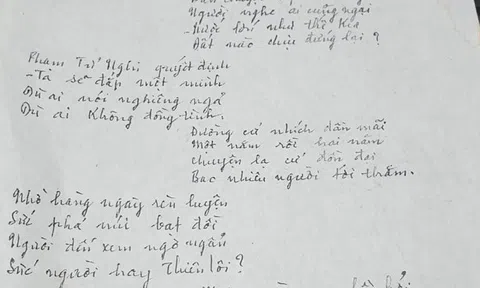 Người nghe ai cũng ngại
-Nước lớn như thế kia
Đất nào chịu đứng lại ?
Phạm Trứ Nghi quyết định
-Ta sẽ đắp một mình
Dù ai nói nghiêng ngả
Dù ai không đồng tình.
Đường cứ nhích dần mãi
Một năm rồi hai năm
Chuyện lạ cứ đồn đại
Bao nhiêu người tới thăm.
Nhờ hàng ngày rèn luyện
Sức phá núi bạt đồi
Người đến xem ngờ ngẩn
Sức người hay Thiên lôi ?